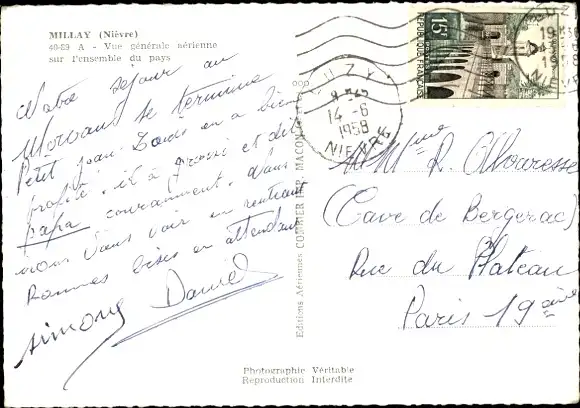 MILLAY (Nièvre)
40-89 A - Vue générale aérienne
sur l'ensemble du pays
Notre séjour au
Morvans se termine
Petit Jean-Louis en a bien
profité. il à grossi et dit
papa couramment. Nous
irons vous voir en rentrant
Bonnes bises en attendant
Simone Daniel
Editions Aériennes COMBIER IMP. MACON
LUZY
14-6
1958
NIEVRE
15F
REPUBLIQUE FRANÇAISE
M. Mme R. Alvaresse
(Cave de Bergerac)
Rue du Plateau
Paris 19ème
Photographie Véritable
Reproduction Interdite